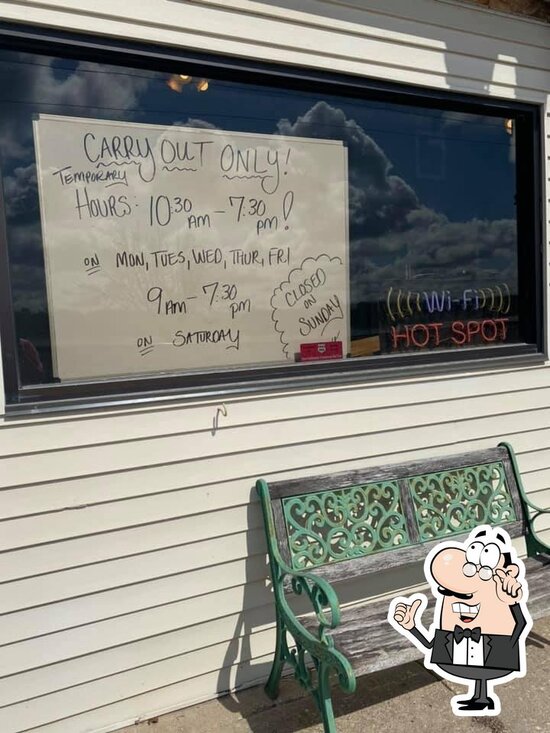 CARRY OUT ONLY!
TEMPORARY
HOURS: 10:30 AM - 7:30 pm!
on MON, TUES, WED, THUR, FRI
9 AM - 7:30 pm
on SATURDAY
CLOSED
on
SUNDAY
((((Wi-Fi))))
HOT SPOT